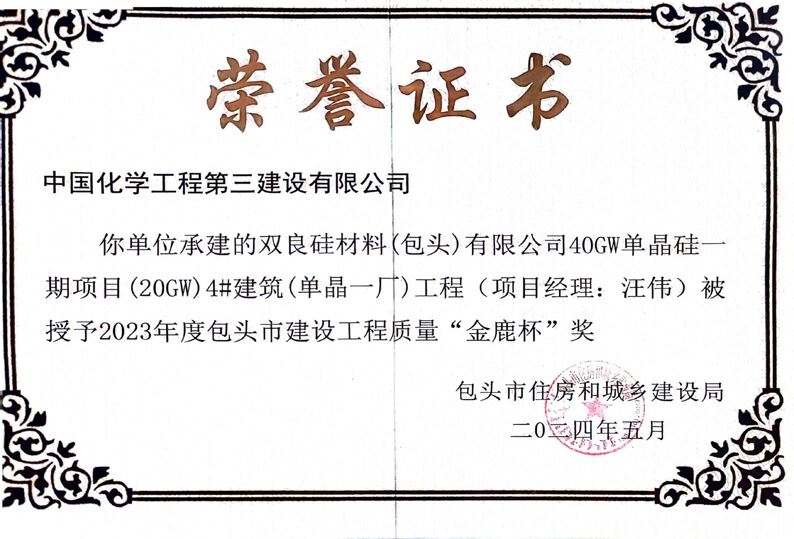 荣誉证书
中国化学工程第三建设有限公司
你单位承建的双良硅材料(包头)有限公司40GW单晶硅一
期项目(20GW)4#建筑(单晶一厂)工程（项目经理：汪伟）被
授予2023年度包头市建设工程质量“金鹿杯”奖
包头市住房和城乡建设局
二〇二四年五月